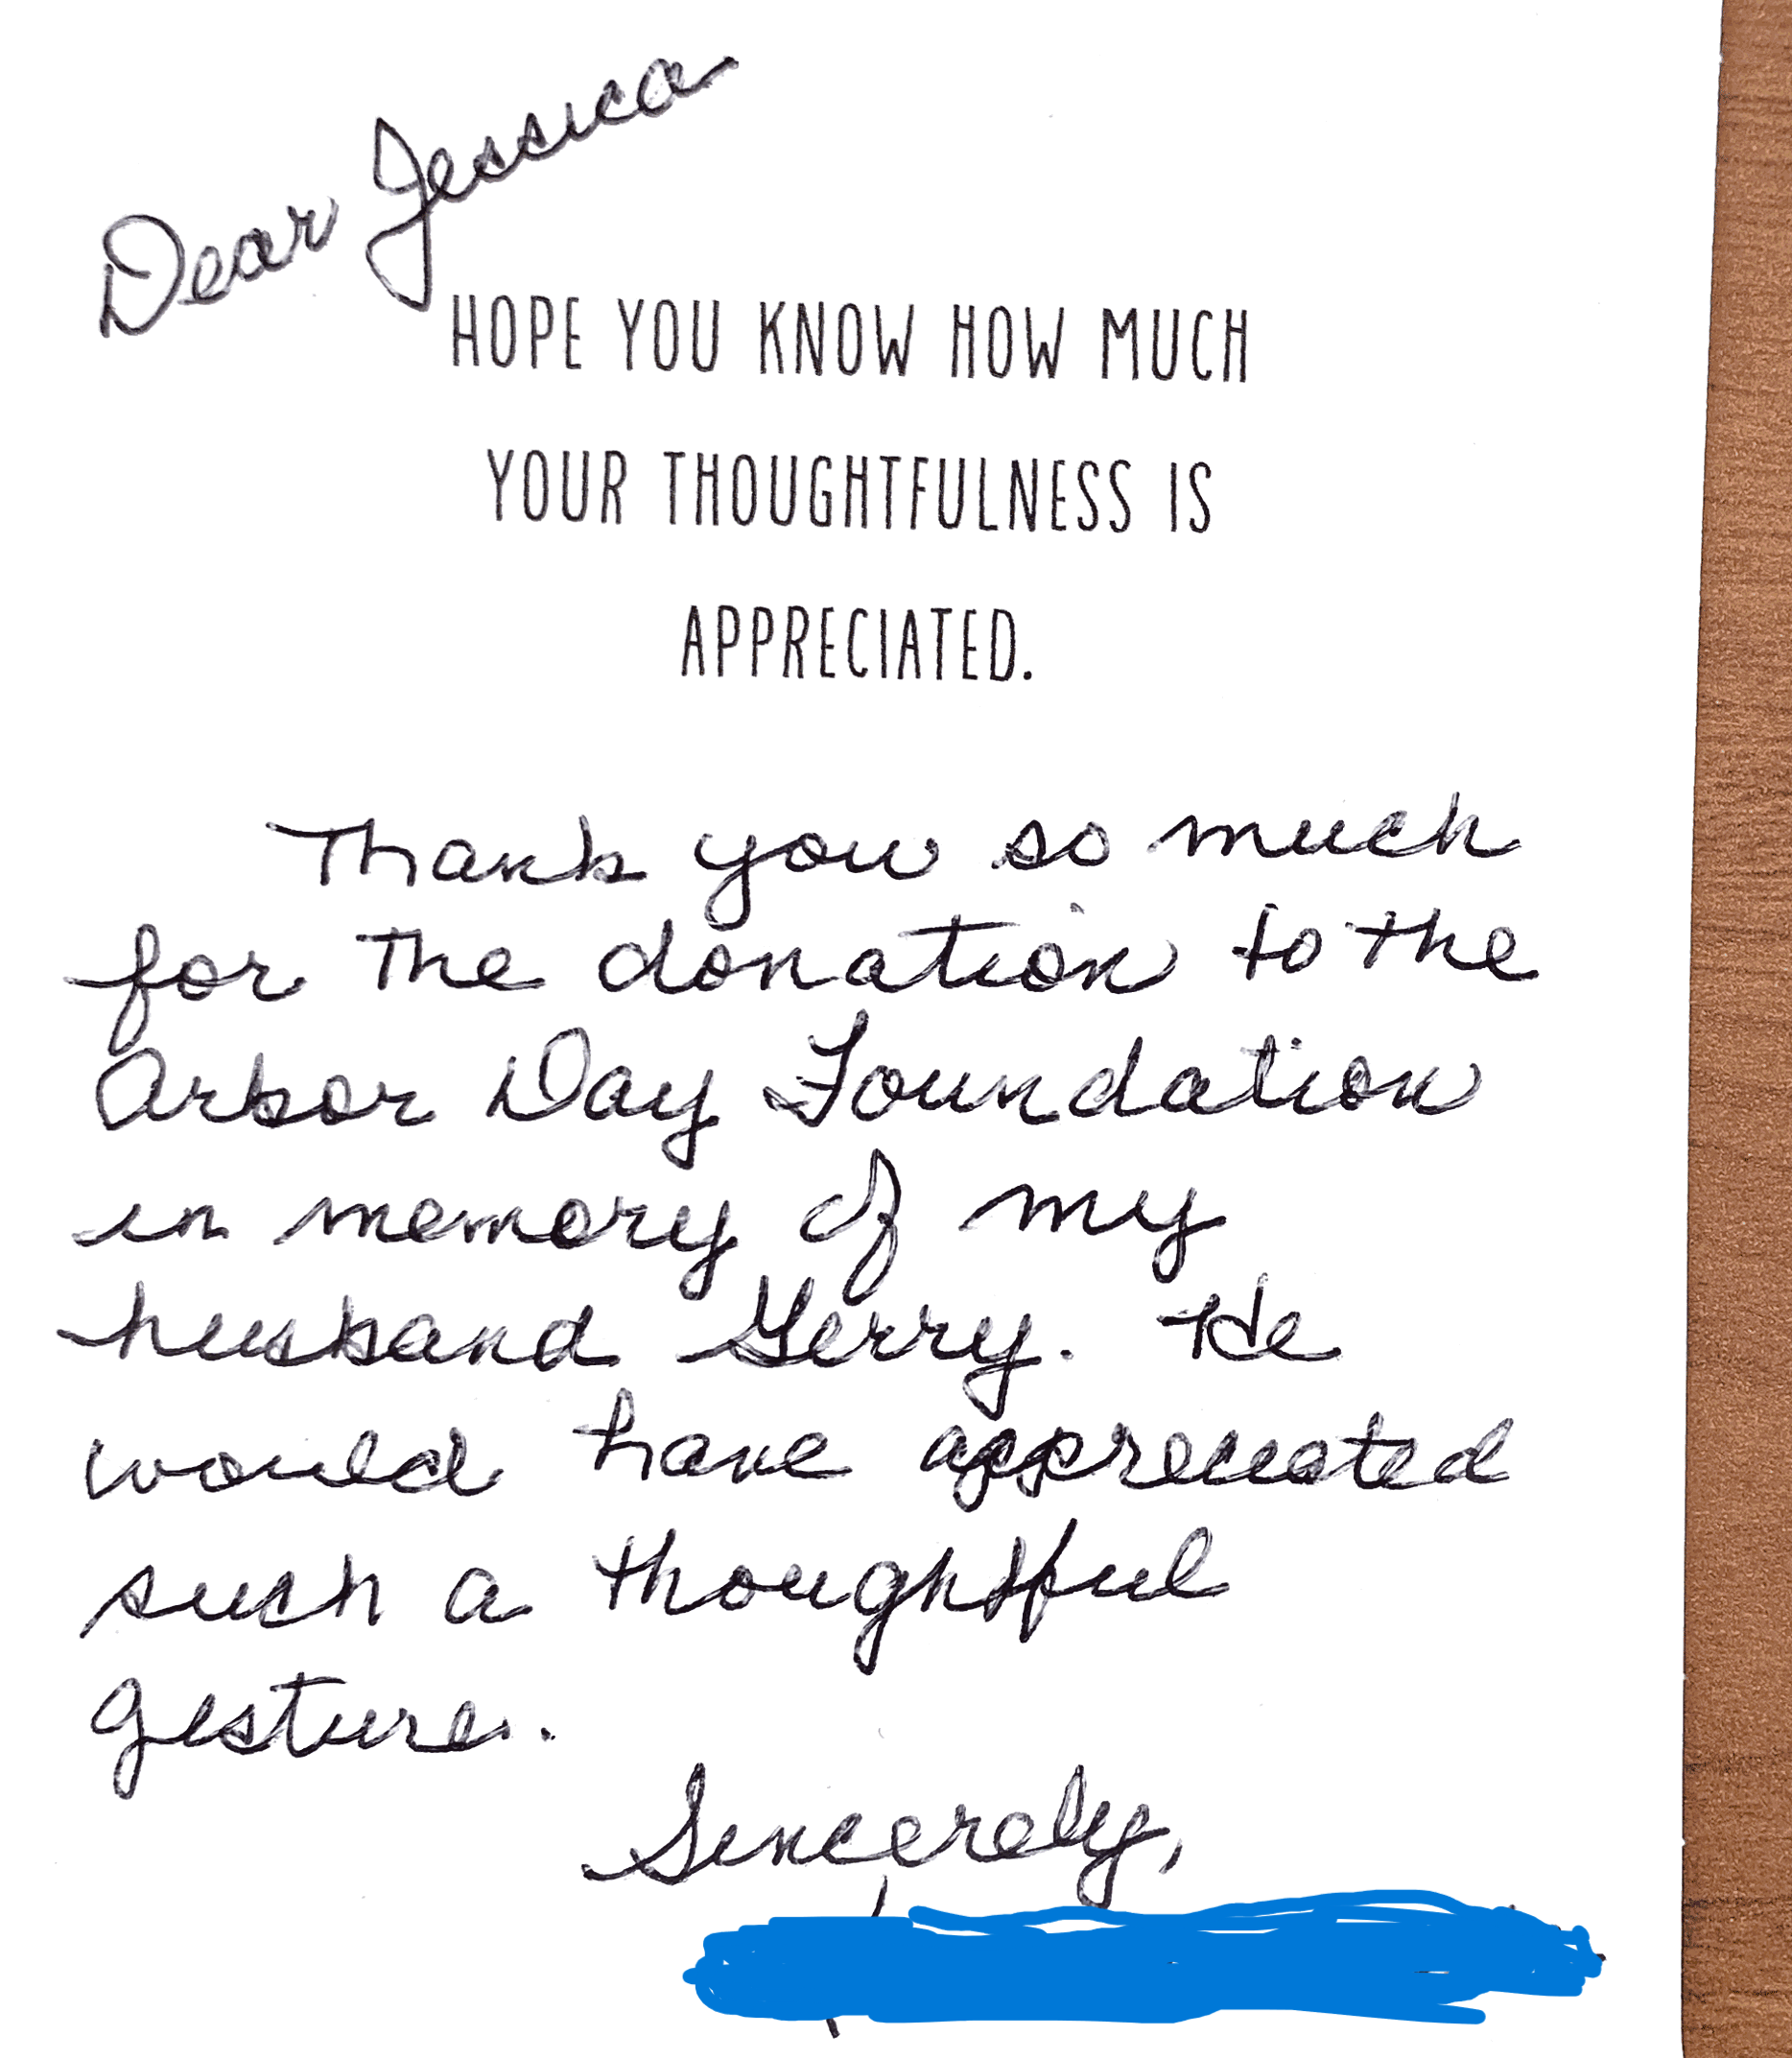 Dear Jessica
HOPE YOU KNOW HOW MUCH
YOUR THOUGHTFULNESS IS
APPRECIATED.
Thank you so much
for the donation to the
Arbor Day Foundation
in memory of my
husband Gerry. He
would have appreciated
such a thoughtful
gesture.
Sincerely,